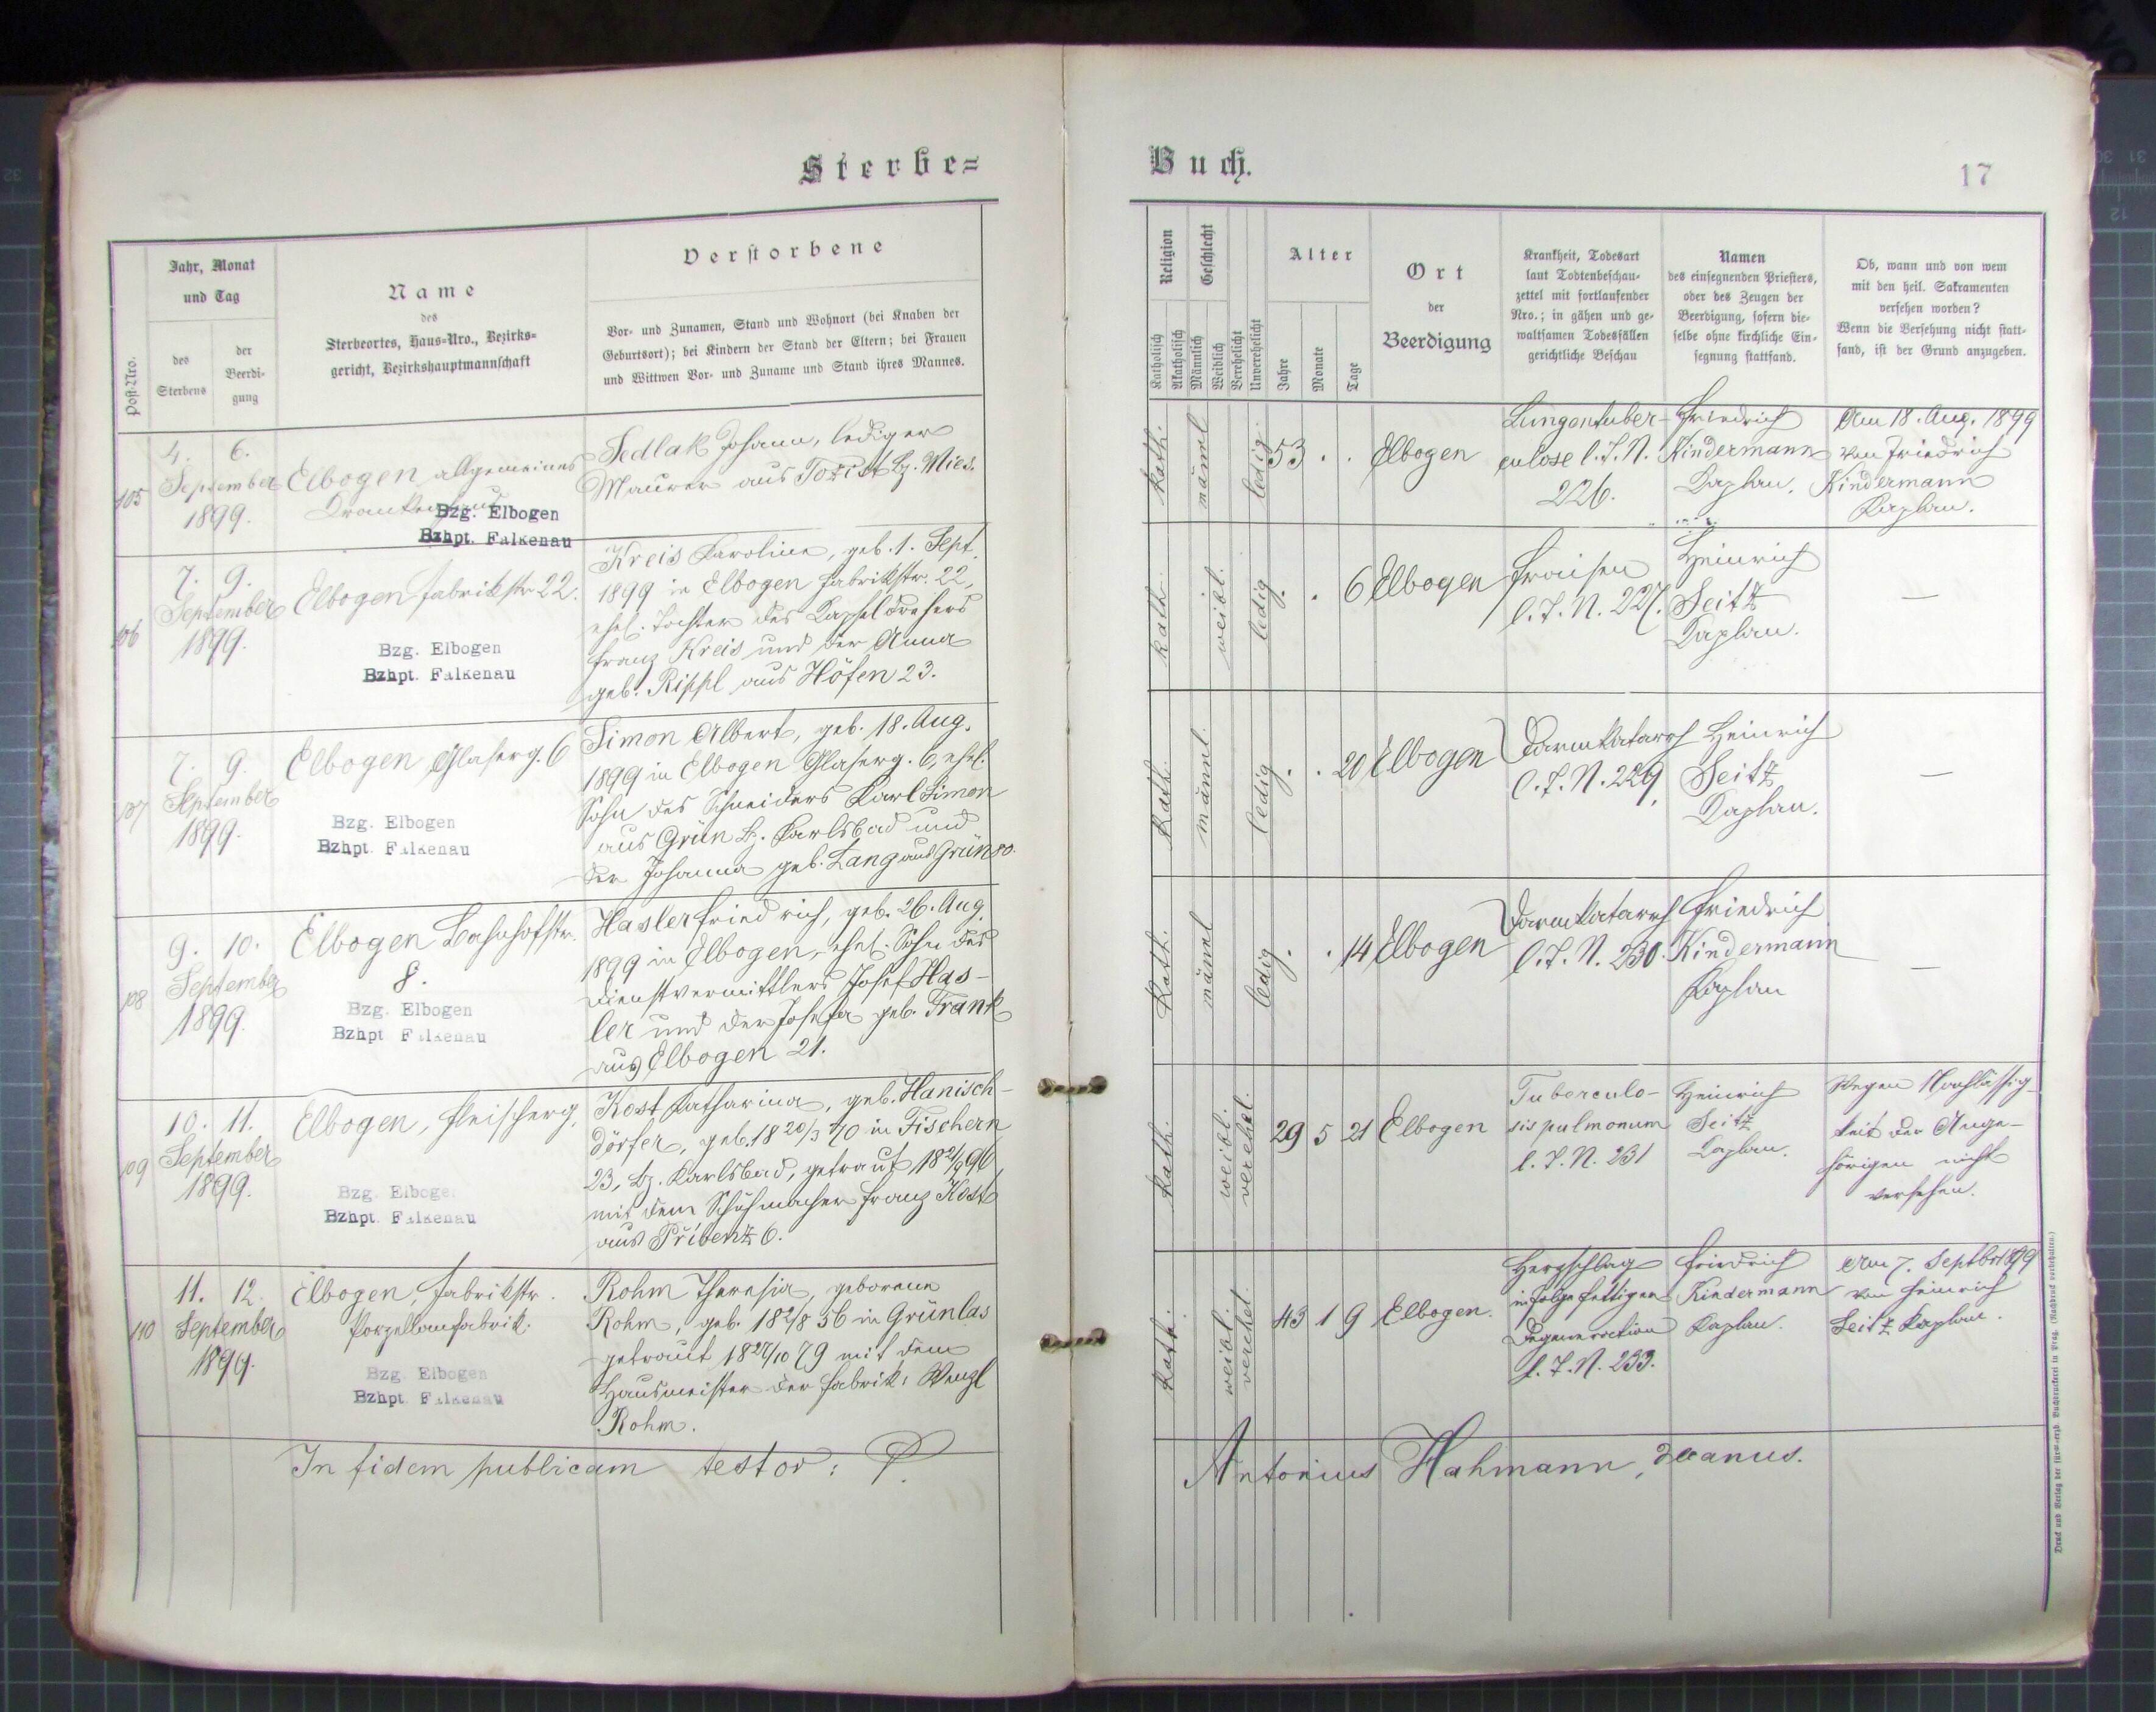 Sterbe=
Jahr, Monat
und Tag
Post-Nro.
des
Sterbens
der
Beerdi-
gung
Name
des
Sterbeortes, Haus-Nro., Bezirks-
gericht, Bezirkshauptmannschaft
Verstorbene
Vor- und Zunamen, Stand und Wohnort (bei Knaben der
Geburtsort); bei Kindern der Stand der Eltern; bei Frauen
und Wittwen Vor- und Zuname und Stand ihres Mannes.
105
4. 6.
September
1899.
Elbogen allgemeines
Krankenhaus
Bzg. Elbogen
Bzhpt. Falkenau
Sedlak Johann, lediger
Maurer aus Bz. Mies.
106
7. 9.
September
1899.
Elbogen Fabrikstr 22.
Bzg. Elbogen
Bzhpt. Falkenau
Kreis Karoline, geb. 1. Sept.
1899 in Elbogen Fabrikstr. 22,
ehel. Tochter des Kapseldrehers
Franz Kreis und der Anna
geb. Rippl aus Höfen 23.
107
7. 9.
September
1899.
Elbogen Glaserg. 6
Bzg. Elbogen
Bzhpt. Falkenau
Simon Albert, geb. 18. Aug.
1899 in Elbogen Glaserg. 6, ehel.
Sohn des Schneiders Karl Simon
aus Grün Bz. Karlsbad und
der Johanna geb. Lang aus Grün 80.
108
9. 10.
September
1899.
Elbogen Bahnhofstr.
8.
Bzg. Elbogen
Bzhpt Falkenau
Hasler Friedrich, geb. 26. Aug.
1899 in Elbogen, ehel. Sohn des
Dienstvermittlers Josef Has-
ler und der Josefa geb. Frank
aus Elbogen 21.
109
10. 11.
September
1899.
Elbogen, Fleischerg.
Bzg. Elbogen
Bzhpt. Falkenau
Kost Katharina, geb. Hanisch-
dörfer, geb. 18 20/3 70 in Fischern
23, Bz. Karlsbad, getraut 18 96
mit dem Schuhmacher Franz Kost
aus Přibenz 6.
110
11. 12.
September
1899.
Elbogen, Fabrikstr.
Porzellanfabrik.
Bzg. Elbogen
Bzhpt. Falkenau
Rohm Theresia, geborene
Rohm, geb. 18 2/8 56 in Grünlas
getraut 18 27/10 79 mit dem
Hausmeister der Fabrik: Wenzl
Rohm.
In fidem publicam testor:
Buch.
17
Religion
Geschlecht
Katholisch
Akatholisch
Männlich
Weiblich
Verehelicht
Unverehelicht
Alter
Jahre
Monate
Tage
Ort
der
Beerdigung
Krankheit, Todesart
laut Todtenbeschau-
zettel mit fortlaufender
Nro.; in gähen und ge-
waltsamen Todesfällen
gerichtliche Beschau
Namen
des einsegnenden Priesters,
oder des Zeugen der
Beerdigung, sofern die-
selbe ohne kirchliche Ein-
segnung stattfand.
Ob, wann und von wem
mit den heil. Sakramenten
versehen worden?
Wenn die Versehung nicht statt-
fand, ist der Grund anzugeben.
kath.
männl
ledig
53 . .
Elbogen
Lungentuber-
culose l. T. N.
226.
Friedrich
Kindermann
Kaplan.
Am 18. Aug. 1899
von Friedrich
Kindermann
Kaplan.
kath.
weibl.
ledig
. . 6
Elbogen
Fraisen
l. T. N. 227.
Heinrich
Seitz
Kaplan.
—
kath.
männl.
ledig
. . 20
Elbogen
Darmkatarrh
l. T. N. 229.
Heinrich
Seitz
Kaplan.
—
kath.
männl
ledig
. . 14
Elbogen
Darmkatarrh
l. T. N. 230.
Friedrich
Kindermann
Kaplan
—
kath.
weibl.
verehel.
29 5 21
Elbogen
Tuberculo-
sis pulmonum
l. T. N. 231
Heinrich
Seitz
Kaplan.
Wegen Nachlässig-
keit der Ange-
hörigen nicht
versehen.
kath.
weibl.
verehel.
43 1 9
Elbogen.
Herzschlag
infolge fettiger
Degeneration
l. T. N. 233.
Friedrich
Kindermann
Kaplan.
Am 7. Septbr 1899
von Heinrich
Seitz Kaplan.
Antonius Hahmann, decanus.
Druck und Verlag der fürst-erzb. Buchdruckerei in Prag. (Nachdruck vorbehalten.)